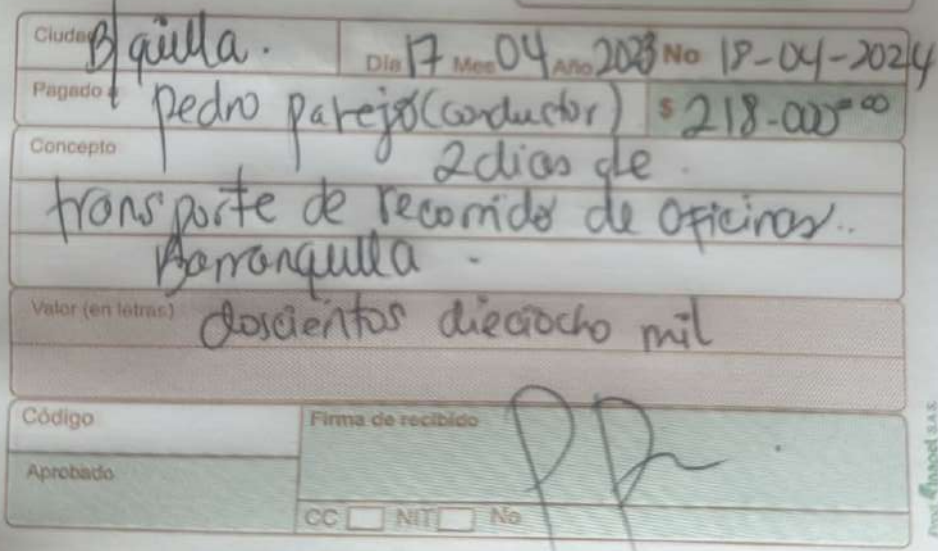 Ciudad B/quilla. Día 17 Mes 04 Año 2023 No 18-04-2024
Pagado a Pedro Parejo (conductor) $ 218-000=00
Concepto 2 dias de
transporte de recorrido de oficinas..
Barranquilla.
Valor (en letras) doscientos dieciocho mil
Código
Firma de recibido
Aprobado
CC NIT No